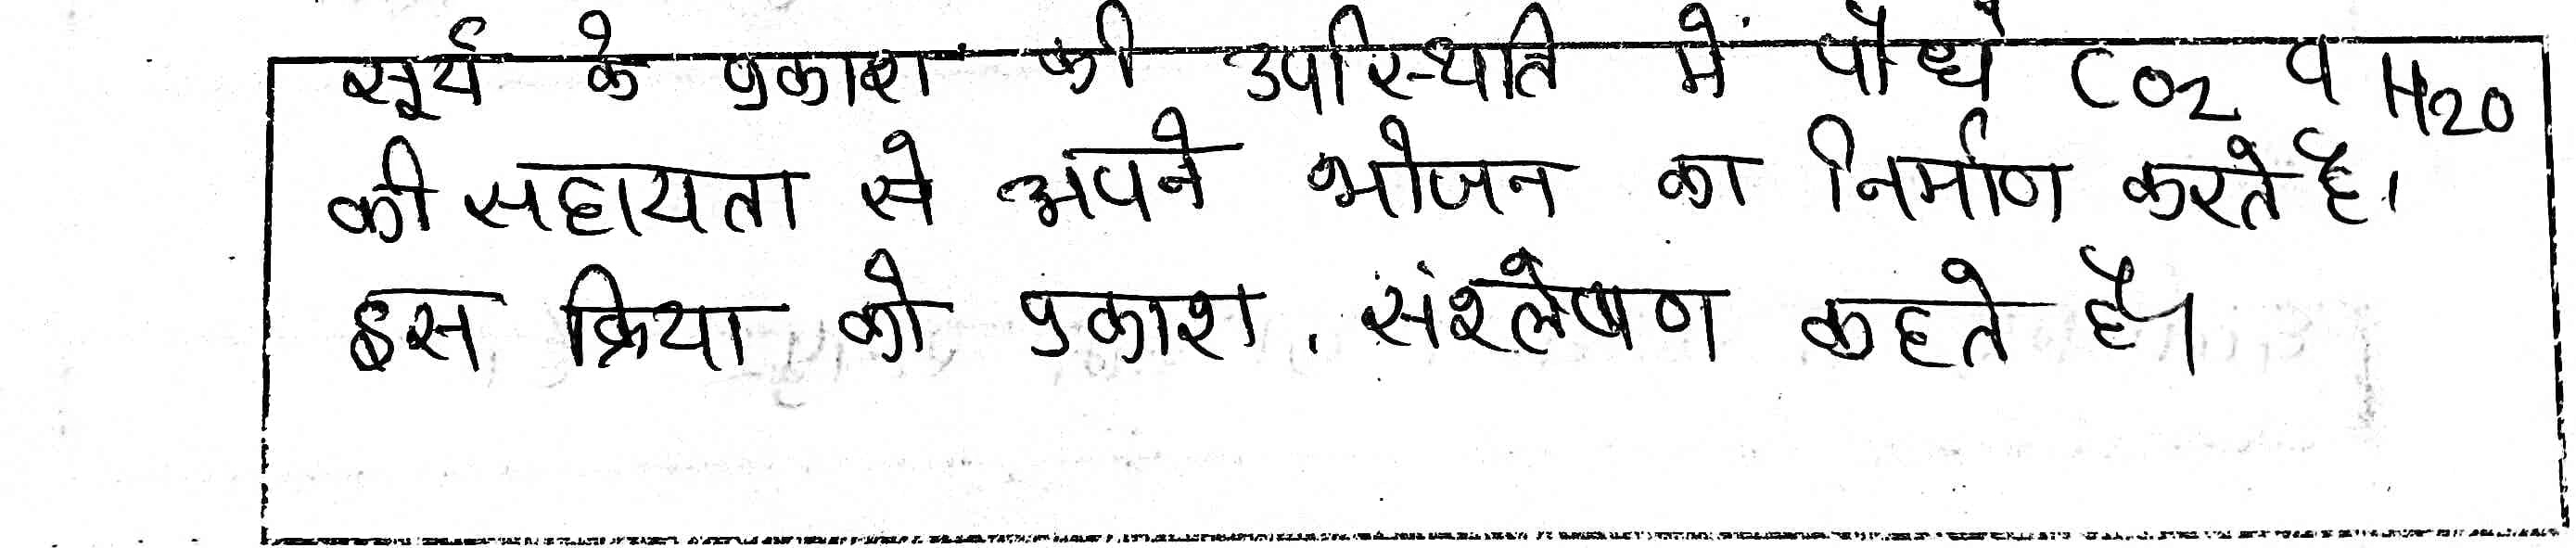 सूर्य के प्रकाश की उपस्थिति में पौधे CO2 व H2O
की सहायता से अपने भोजन का निर्माण करते है।
इस क्रिया को प्रकाश संश्लेषण कहते है।